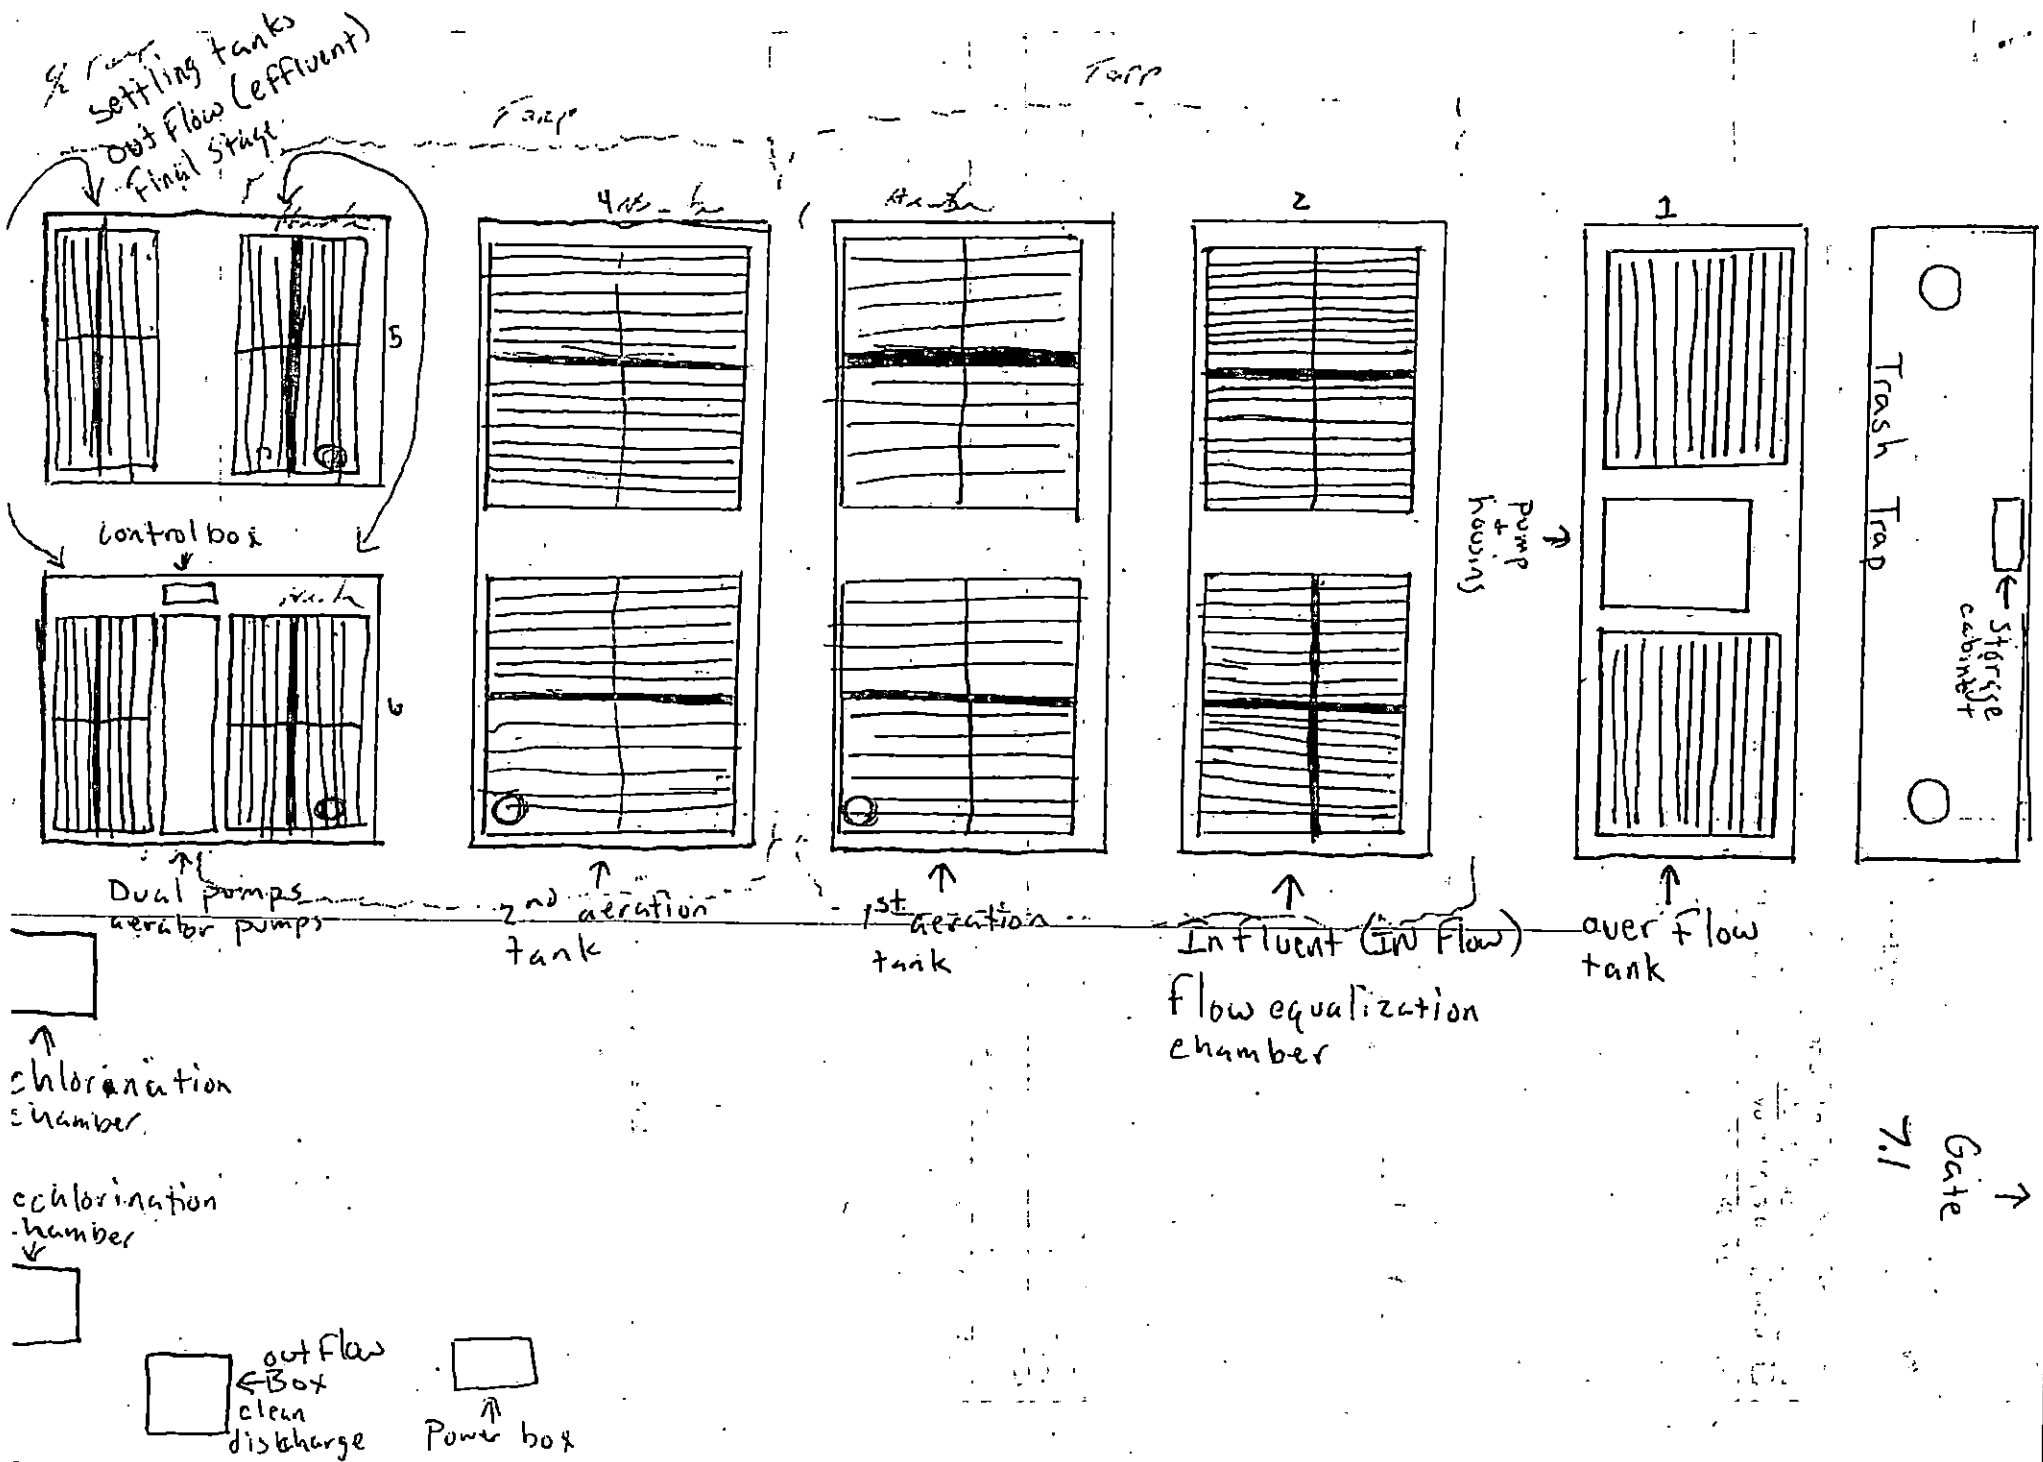 settling tanks
out flow (effluent)
Final Stage
Tarp
Tarp
2
1
5
Trash Trap
control box
pump
+
housing
Storage
cabinet
6
Dual pumps
aerator pumps
2nd aeration
tank
1st aeration
tank
Influent (IN Flow)
Flow equalization
chamber
over flow
tank
chlorination
chamber
Gate
7.1
echlorination
hamber
out flow
Box
clean
discharge
Power box